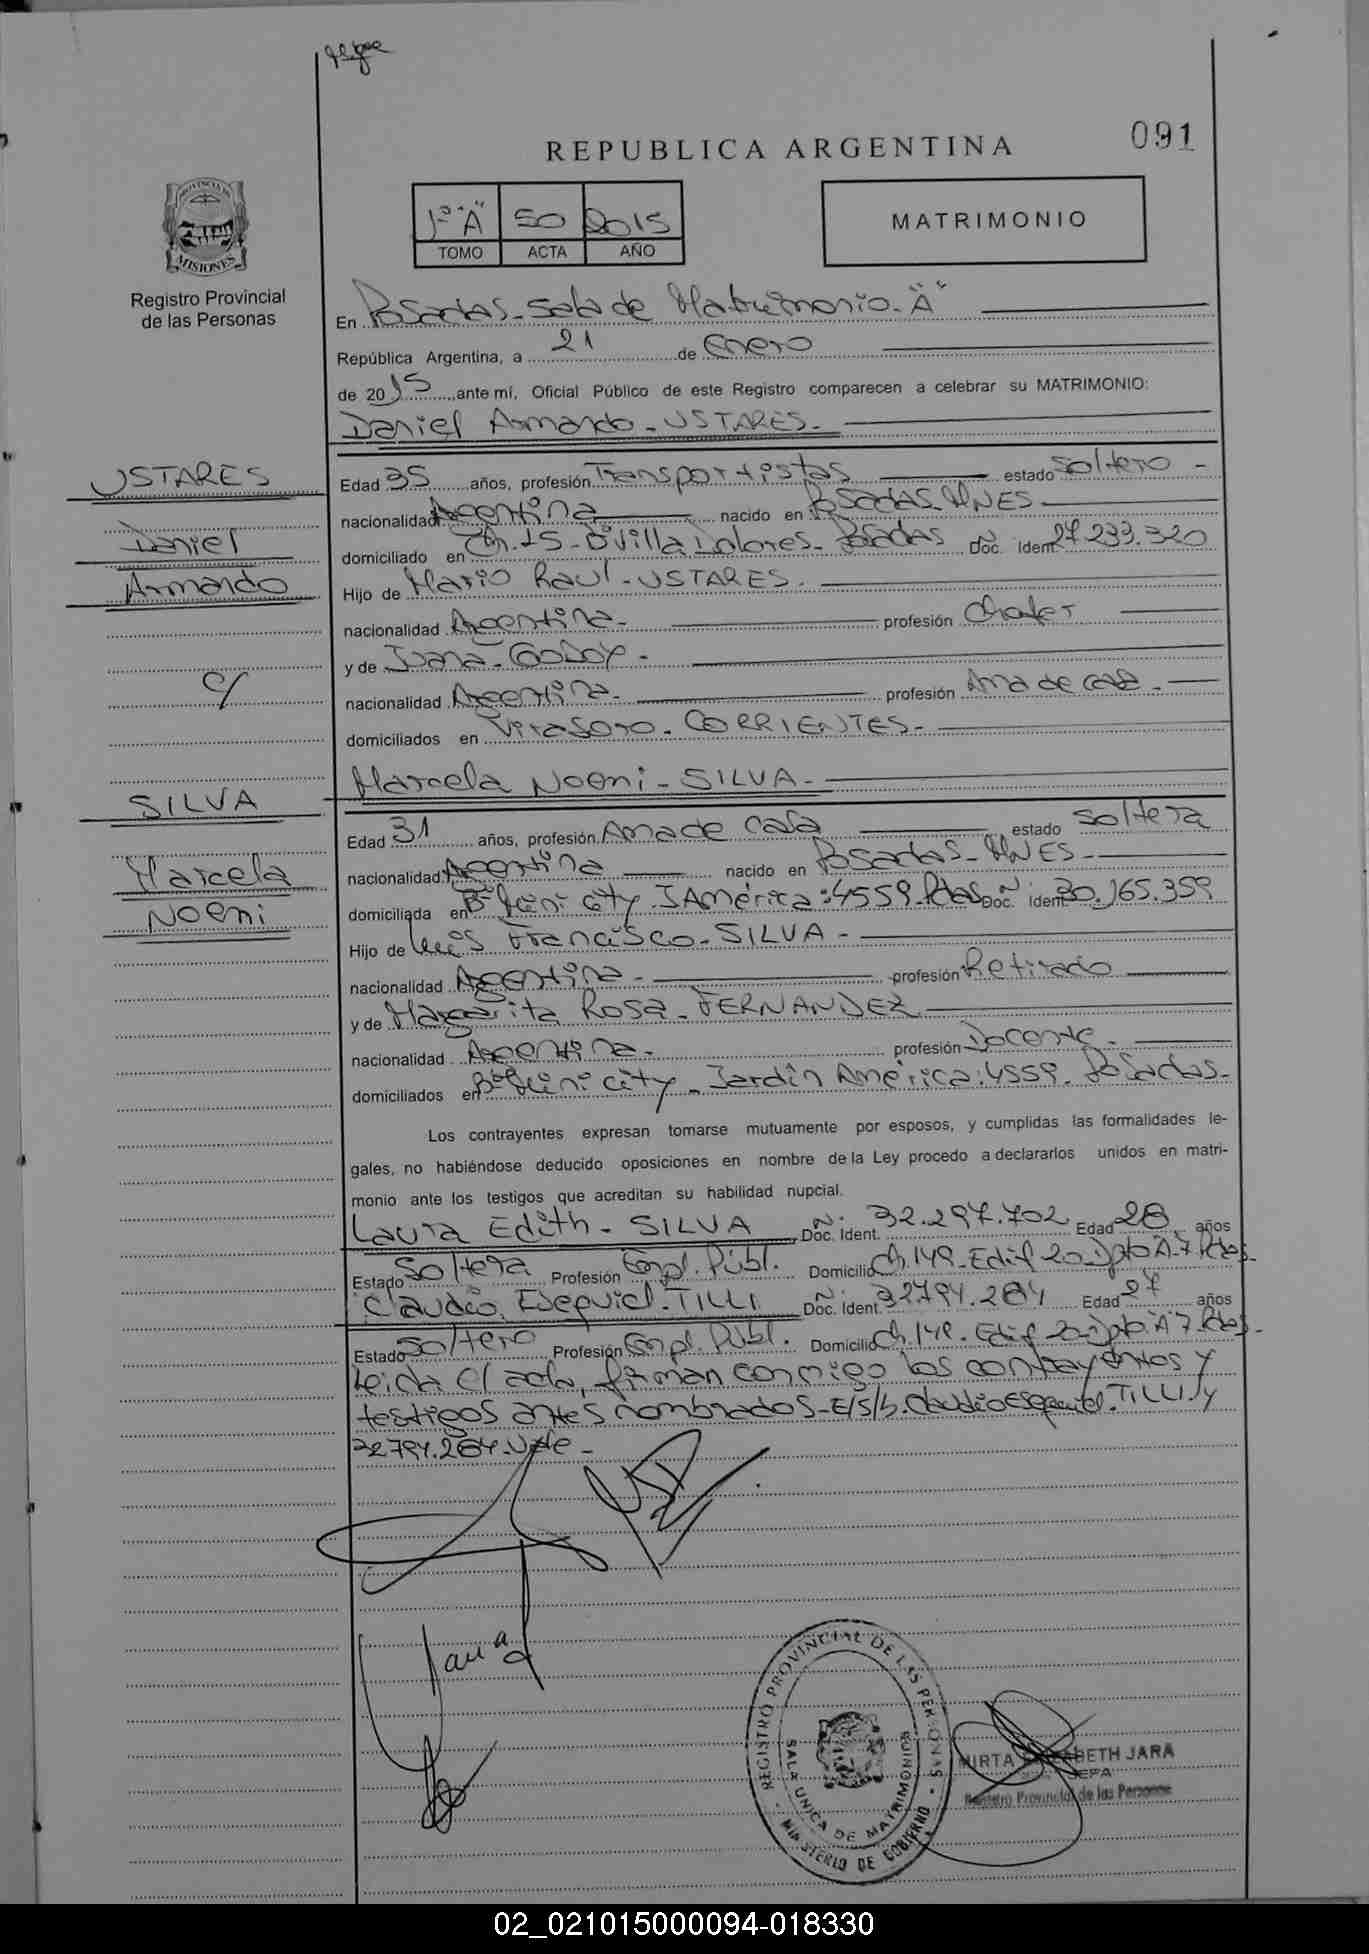 REPUBLICA ARGENTINA
091
1º "A" 50 2015
TOMO ACTA AÑO
MATRIMONIO
PROVINCIA DE
MISIONES
Registro Provincial
de las Personas
En Posadas - Sala de Matrimonio - "A"
República Argentina, a 21 de Enero
de 2015, ante mí, Oficial Público de este Registro comparecen a celebrar su MATRIMONIO:
Daniel Armando - USTARES -
USTARES
Daniel
Armando
c/
SILVA
Marcela
Noemi
Edad 35 años, profesión Transportistas estado Soltero -
nacionalidad Argentina nacido en Posadas - MNES -
domiciliado en Ch. 15 - Bº Villa Dolores - Posadas Doc. Ident. 27.233.320
Hijo de Mario Raul - USTARES -
nacionalidad Argentina - profesión Chofer
y de Juana - GODOY -
nacionalidad Argentina - profesión Ama de casa -
domiciliados en Virasoro - CORRIENTES -
Marcela Noemi - SILVA -
Edad 31 años, profesión Ama de casa estado Soltera
nacionalidad Argentina nacido en Posadas - MNES -
domiciliada en Bº City J América: 4559 - Pdas Doc. Ident. 30.165.359
Hijo de Luis Francisco - SILVA -
nacionalidad Argentina - profesión Retirado
y de Margarita Rosa - FERNANDEZ
nacionalidad Argentina - profesión Docente -
domiciliados en Bº City - Jardín América: 4559 - Posadas -
Los contrayentes expresan tomarse mutuamente por esposos, y cumplidas las formalidades le-
gales, no habiéndose deducido oposiciones en nombre de la Ley procedo a declararlos unidos en matri-
monio ante los testigos que acreditan su habilidad nupcial.
Laura Edith - SILVA Doc. Ident. 32.297.702 Edad 28 años
Estado Soltera Profesión Empl. Públ. Domicilio Ch. 149 - Edif 20 - Dpto A - 7 Pdas -
Claudio Esequiel - TILLI Doc. Ident. 32794.284 Edad 27 años
Estado Soltero Profesión Empl. Públ. Domicilio Ch. 149 - Edif 20 - Dpto "A" 7 - Pdas -
Leida el acta, firman conmigo los contrayentes y
testigos antes nombrados - E/s/b. Claudio Esequiel - TILLI y
32.794.284 Vale -
REGISTRO PROVINCIAL DE LAS PERSONAS
SALA UNICA DE MATRIMONIOS
MINISTERIO DE GOBIERNO
MIRTA ELIZABETH JARA
JEFA
Registro Provincial de las Personas
02_021015000094-018330